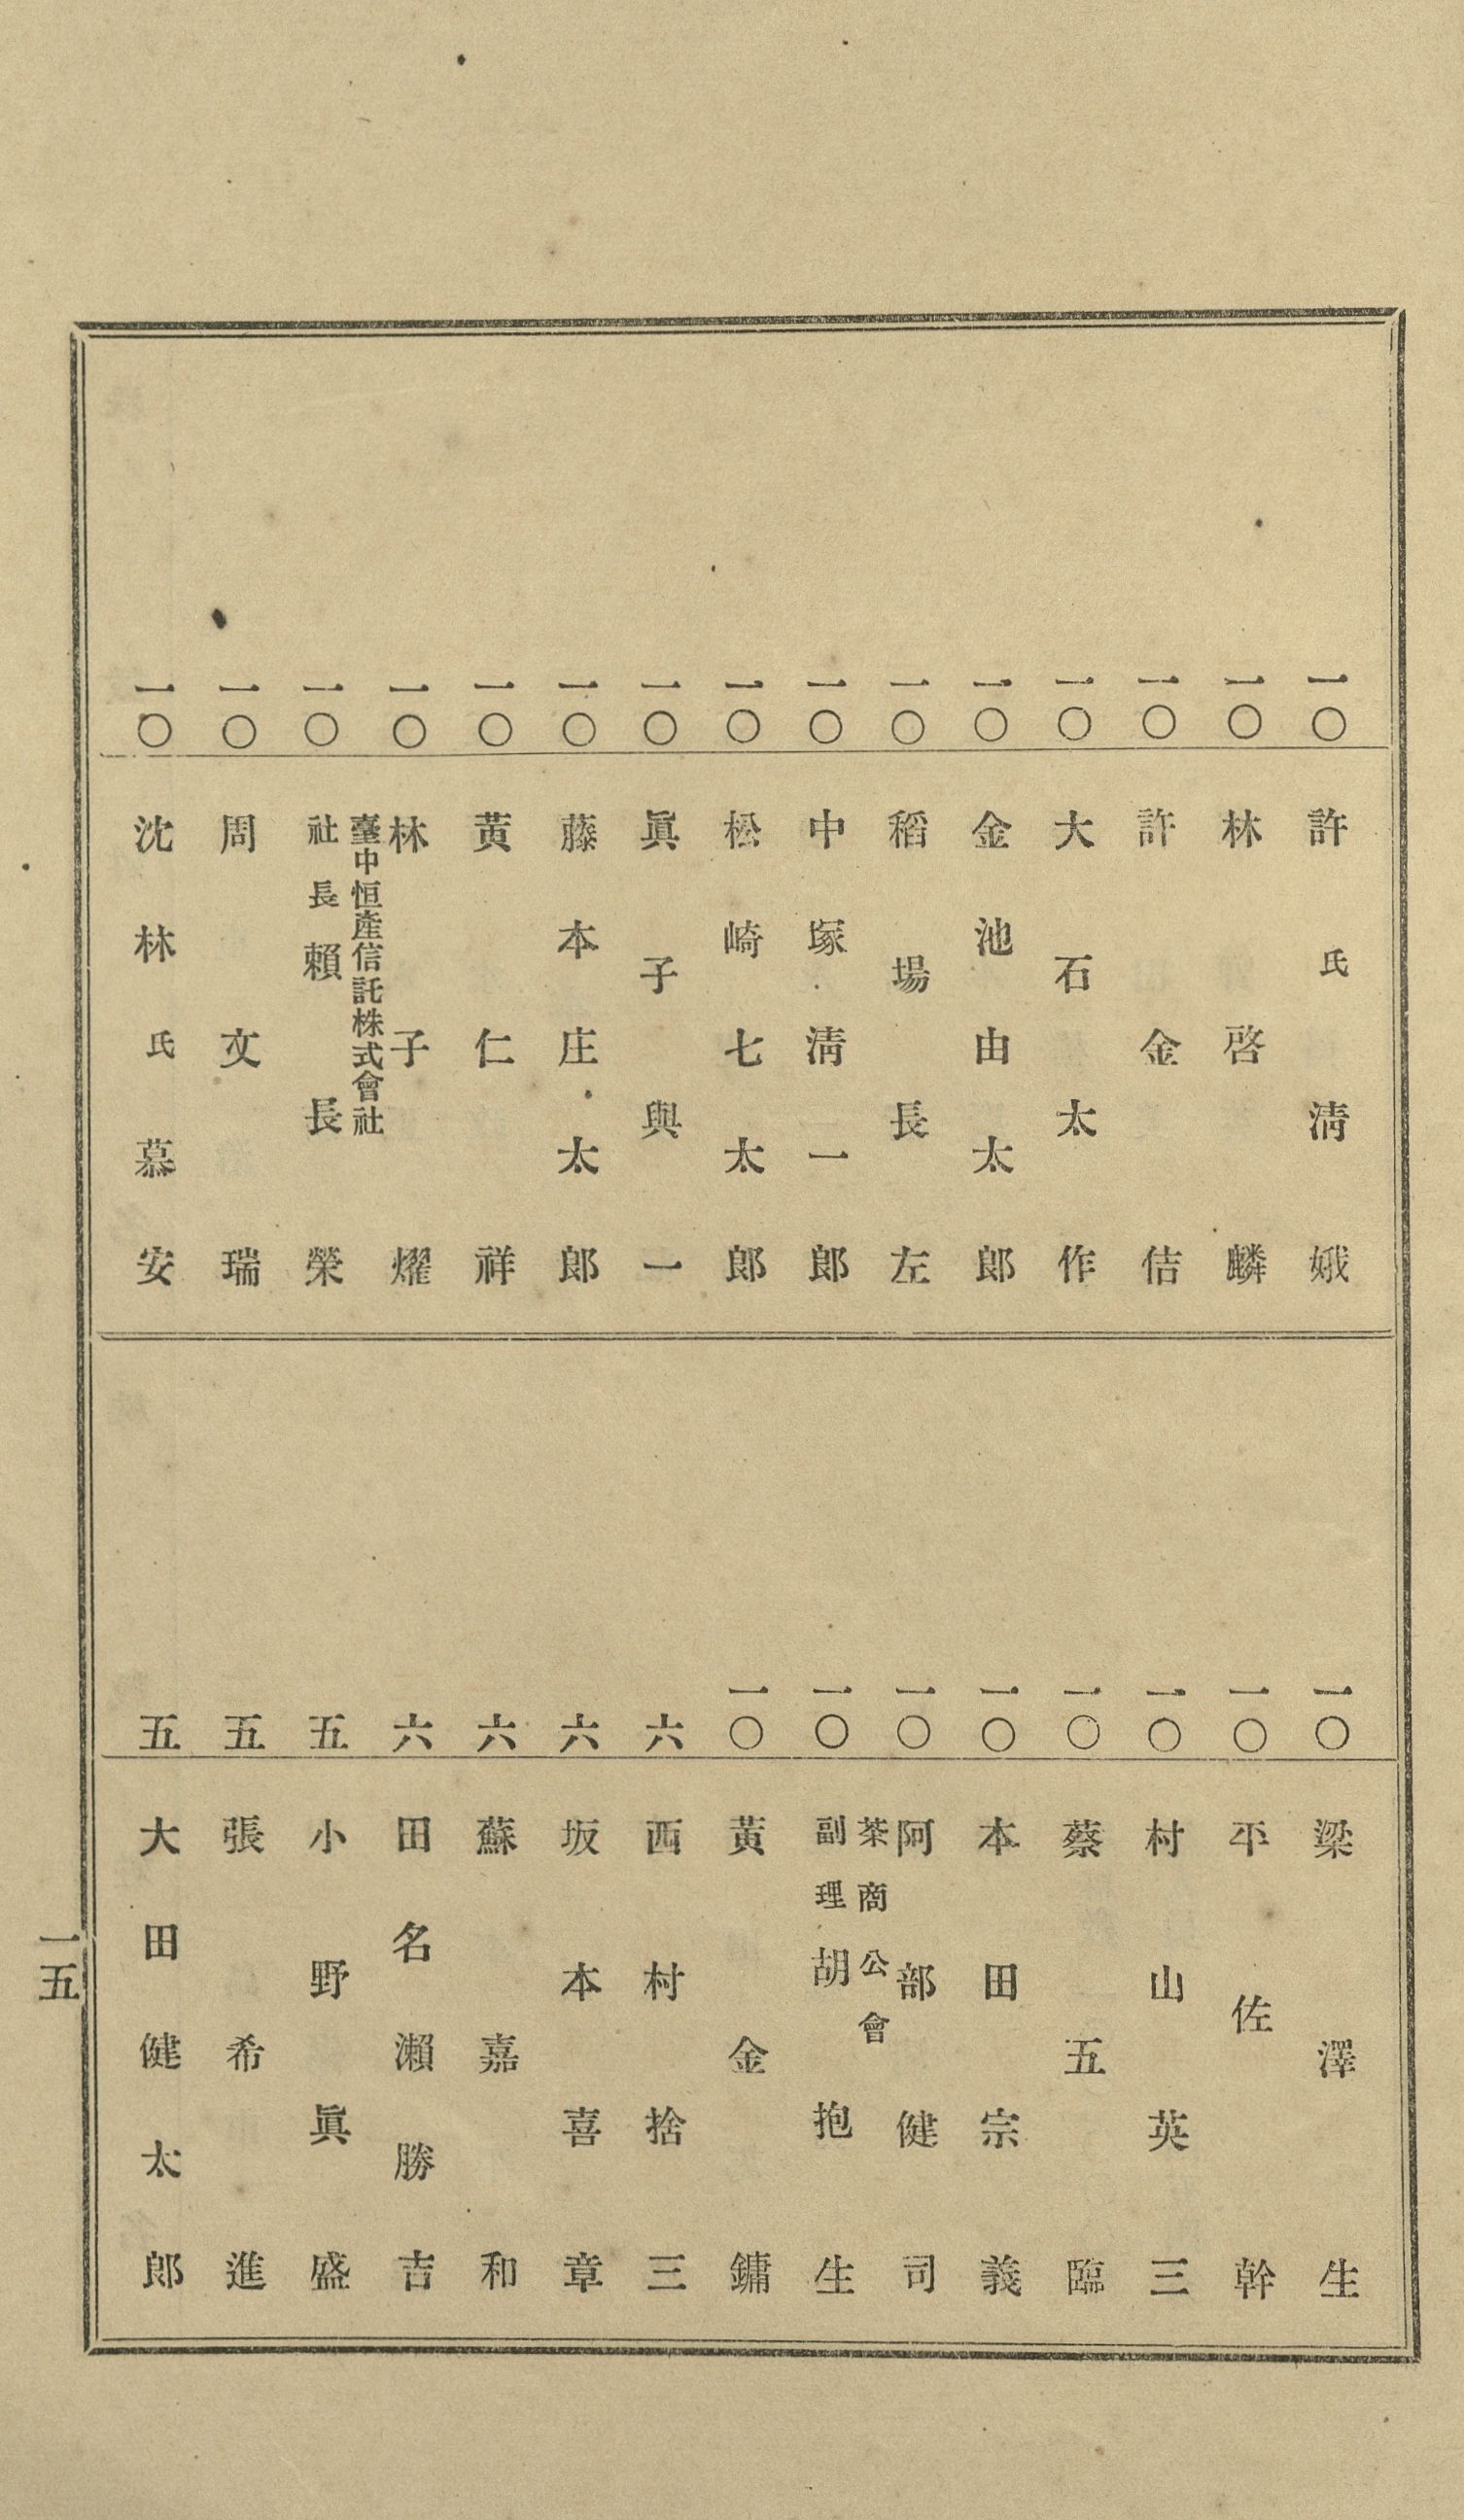 一〇 許氏清娥
一〇 林啓麟
一〇 許金佶
一〇 大石太作
一〇 金池由太郎
一〇 稻場長左
一〇 中塚淸一郎
一〇 松崎七太郎
一〇 眞子與一
一〇 藤本庄太郎
一〇 黄仁祥
一〇 林子燿
一〇 臺中恒產信託株式會社
社長 賴長榮
一〇 周文瑞
一〇 沈林氏慕安
一〇 梁澤生
一〇 平佐幹
一〇 村山英三
一〇 蔡五臨
一〇 本田宗義
一〇 阿部健司
一〇 茶商公會
副理 胡抱生
一〇 黄金鏞
六 西村捨三
六 坂本喜章
六 蘇嘉和
六 田名瀨勝吉
五 小野眞盛
五 張希進
五 大田健太郎
一五